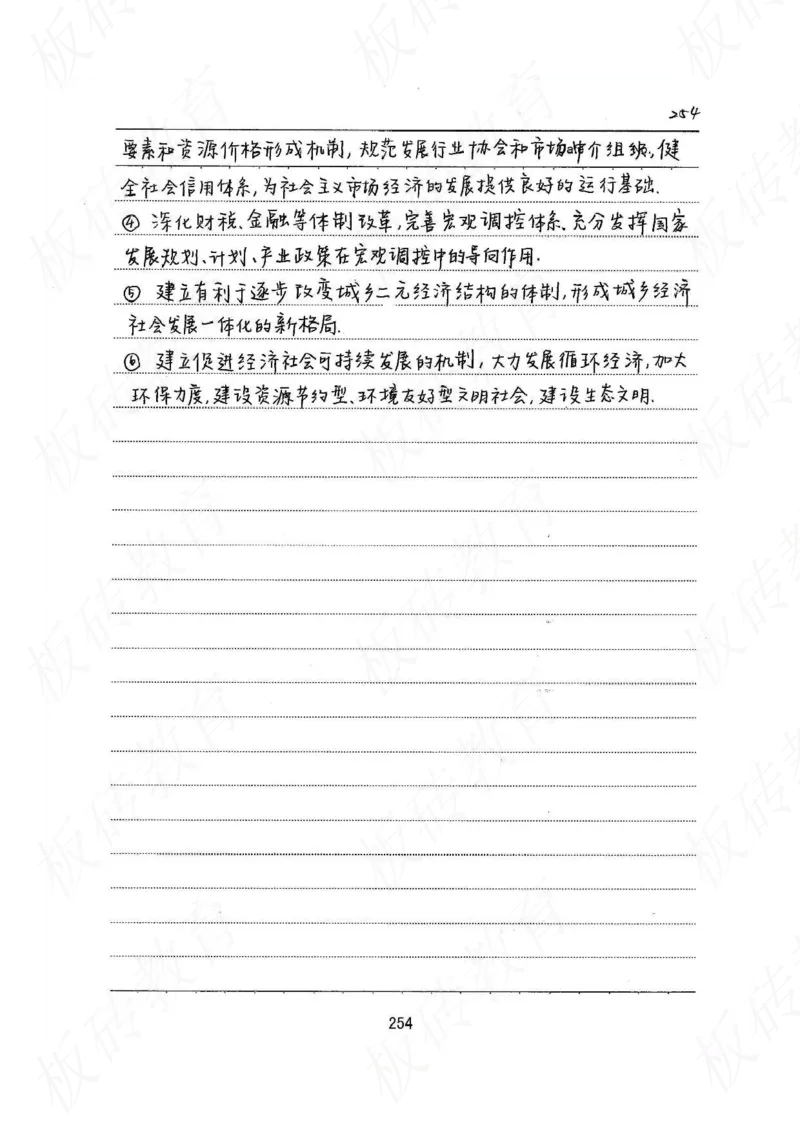 254
要素和资源价格形成机制，规范发展行业协会和市场中介组织，健
全社会信用体系，为社会主义市场经济的发展提供良好的运行基础.
④ 深化财税、金融等体制改革，完善宏观调控体系、充分发挥国家
发展规划、计划、产业政策在宏观调控中的导向作用.
⑤ 建立有利于逐步改变城乡二元经济结构的体制，形成城乡经济
社会发展一体化的新格局.
⑥ 建立促进经济社会可持续发展的机制，大力发展循环经济，加大
环保力度，建设资源节约型、环境友好型文明社会，建设生态文明.
254
板砖教育